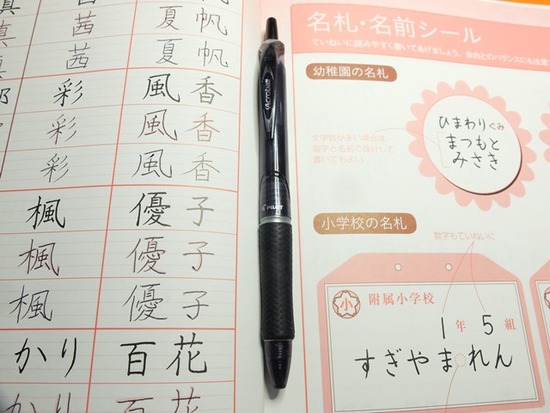 茜 夏 帆
茜 夏 帆
彩 風 香
彩 風 香
彩 風 香
楓 優 子
楓 優 子
楓 優 子
かり 百 花
Acroball
PILOT
名札・名前シール
ていねいに読みやすく書いてあげましょう。余白とのバランスにも注意
幼稚園の名札
ひまわりぐみ
まつもと
みさき
文字数が多い場合は、
苗字と名前で改行して
書いてもよい
小学校の名札
数字もていねいに
小
附属小学校
1年5組
すぎやま れん